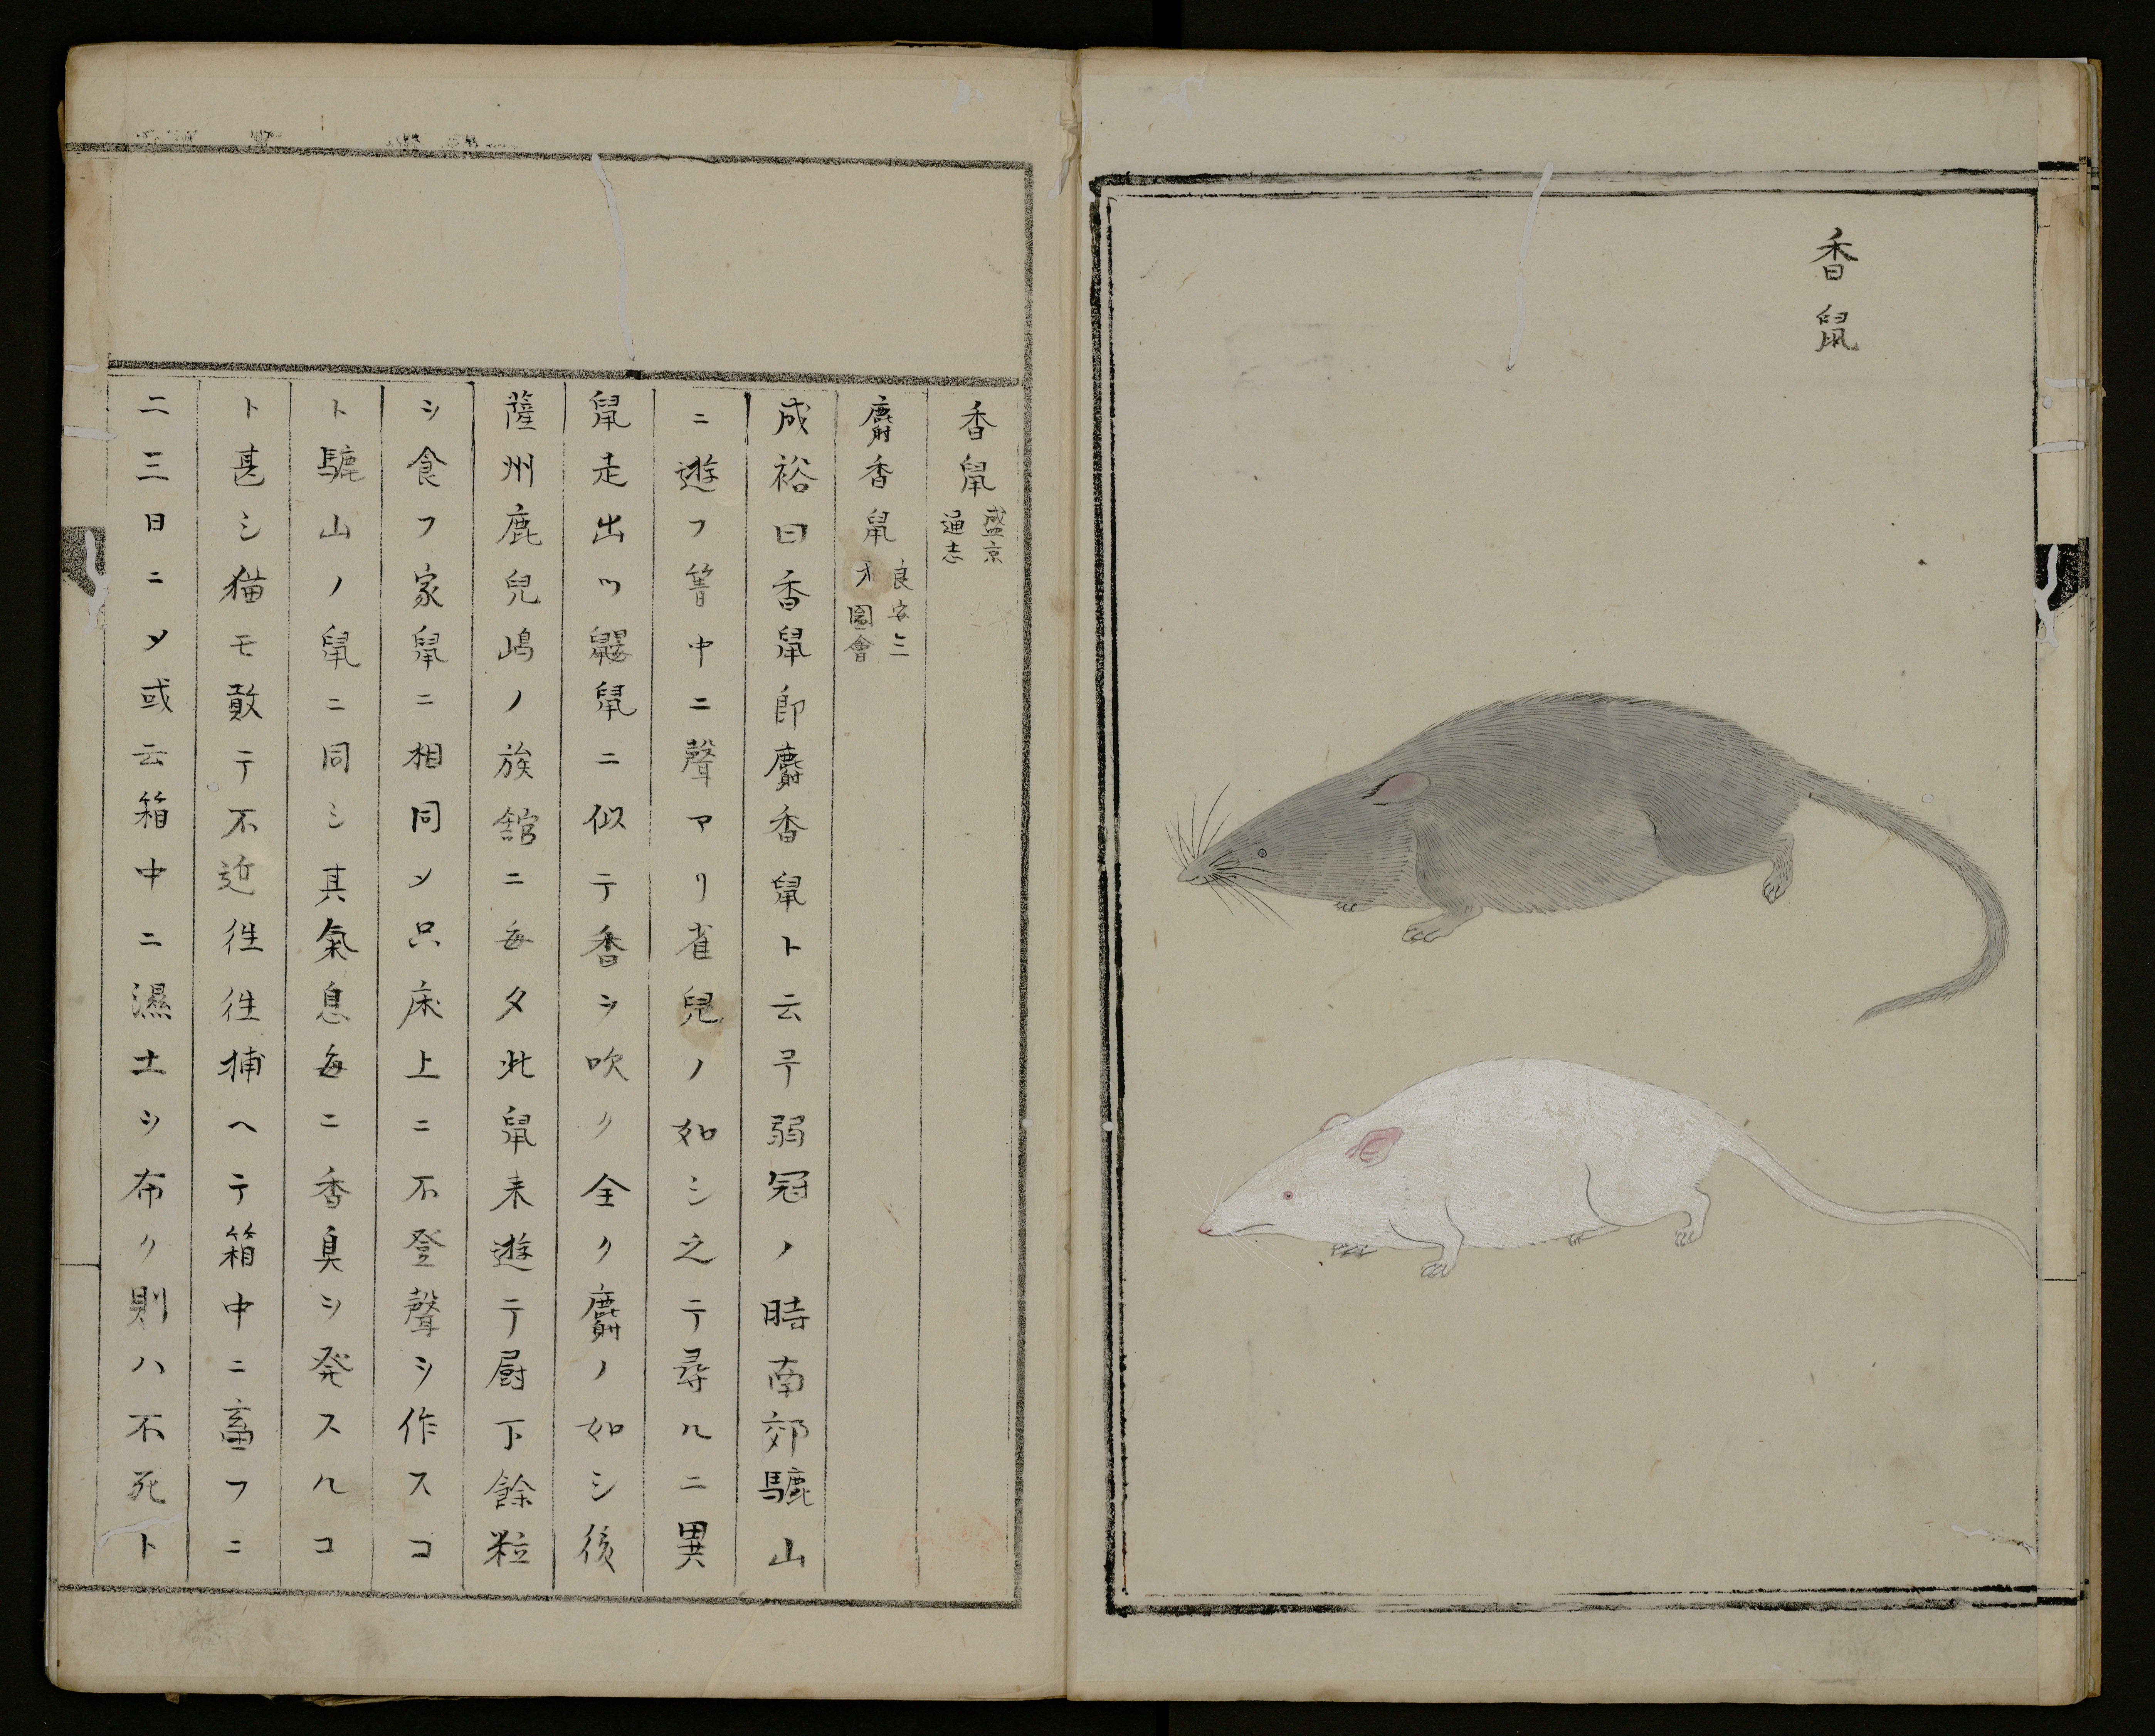 香鼠
香鼠 盛京通志
麝香鼠 良安三才圖會
成裕曰香鼠即麝香鼠ト云予弱冠ノ時南郊驪山
ニ遊フ箐中ニ聲アリ雀兒ノ如シ之テ尋ルニ異
鼠走出ツ鼴鼠ニ似テ香ヲ吹ク全ク麝ノ如シ後
薩州鹿兒嶋ノ旅舘ニ毎夕此鼠来遊テ厨下餘粒
ヲ食フ家鼠ニ相同メ只床上ニ不登聲ヲ作スコ
ト驪山ノ鼠ニ同シ其氣息毎ニ香臭ヲ発スルコ
ト甚シ猫モ敢テ不近徃徃捕ヘテ箱中ニ畜フニ
二三日ニメ或云箱中ニ濕土ヲ布ク則ハ不死ト